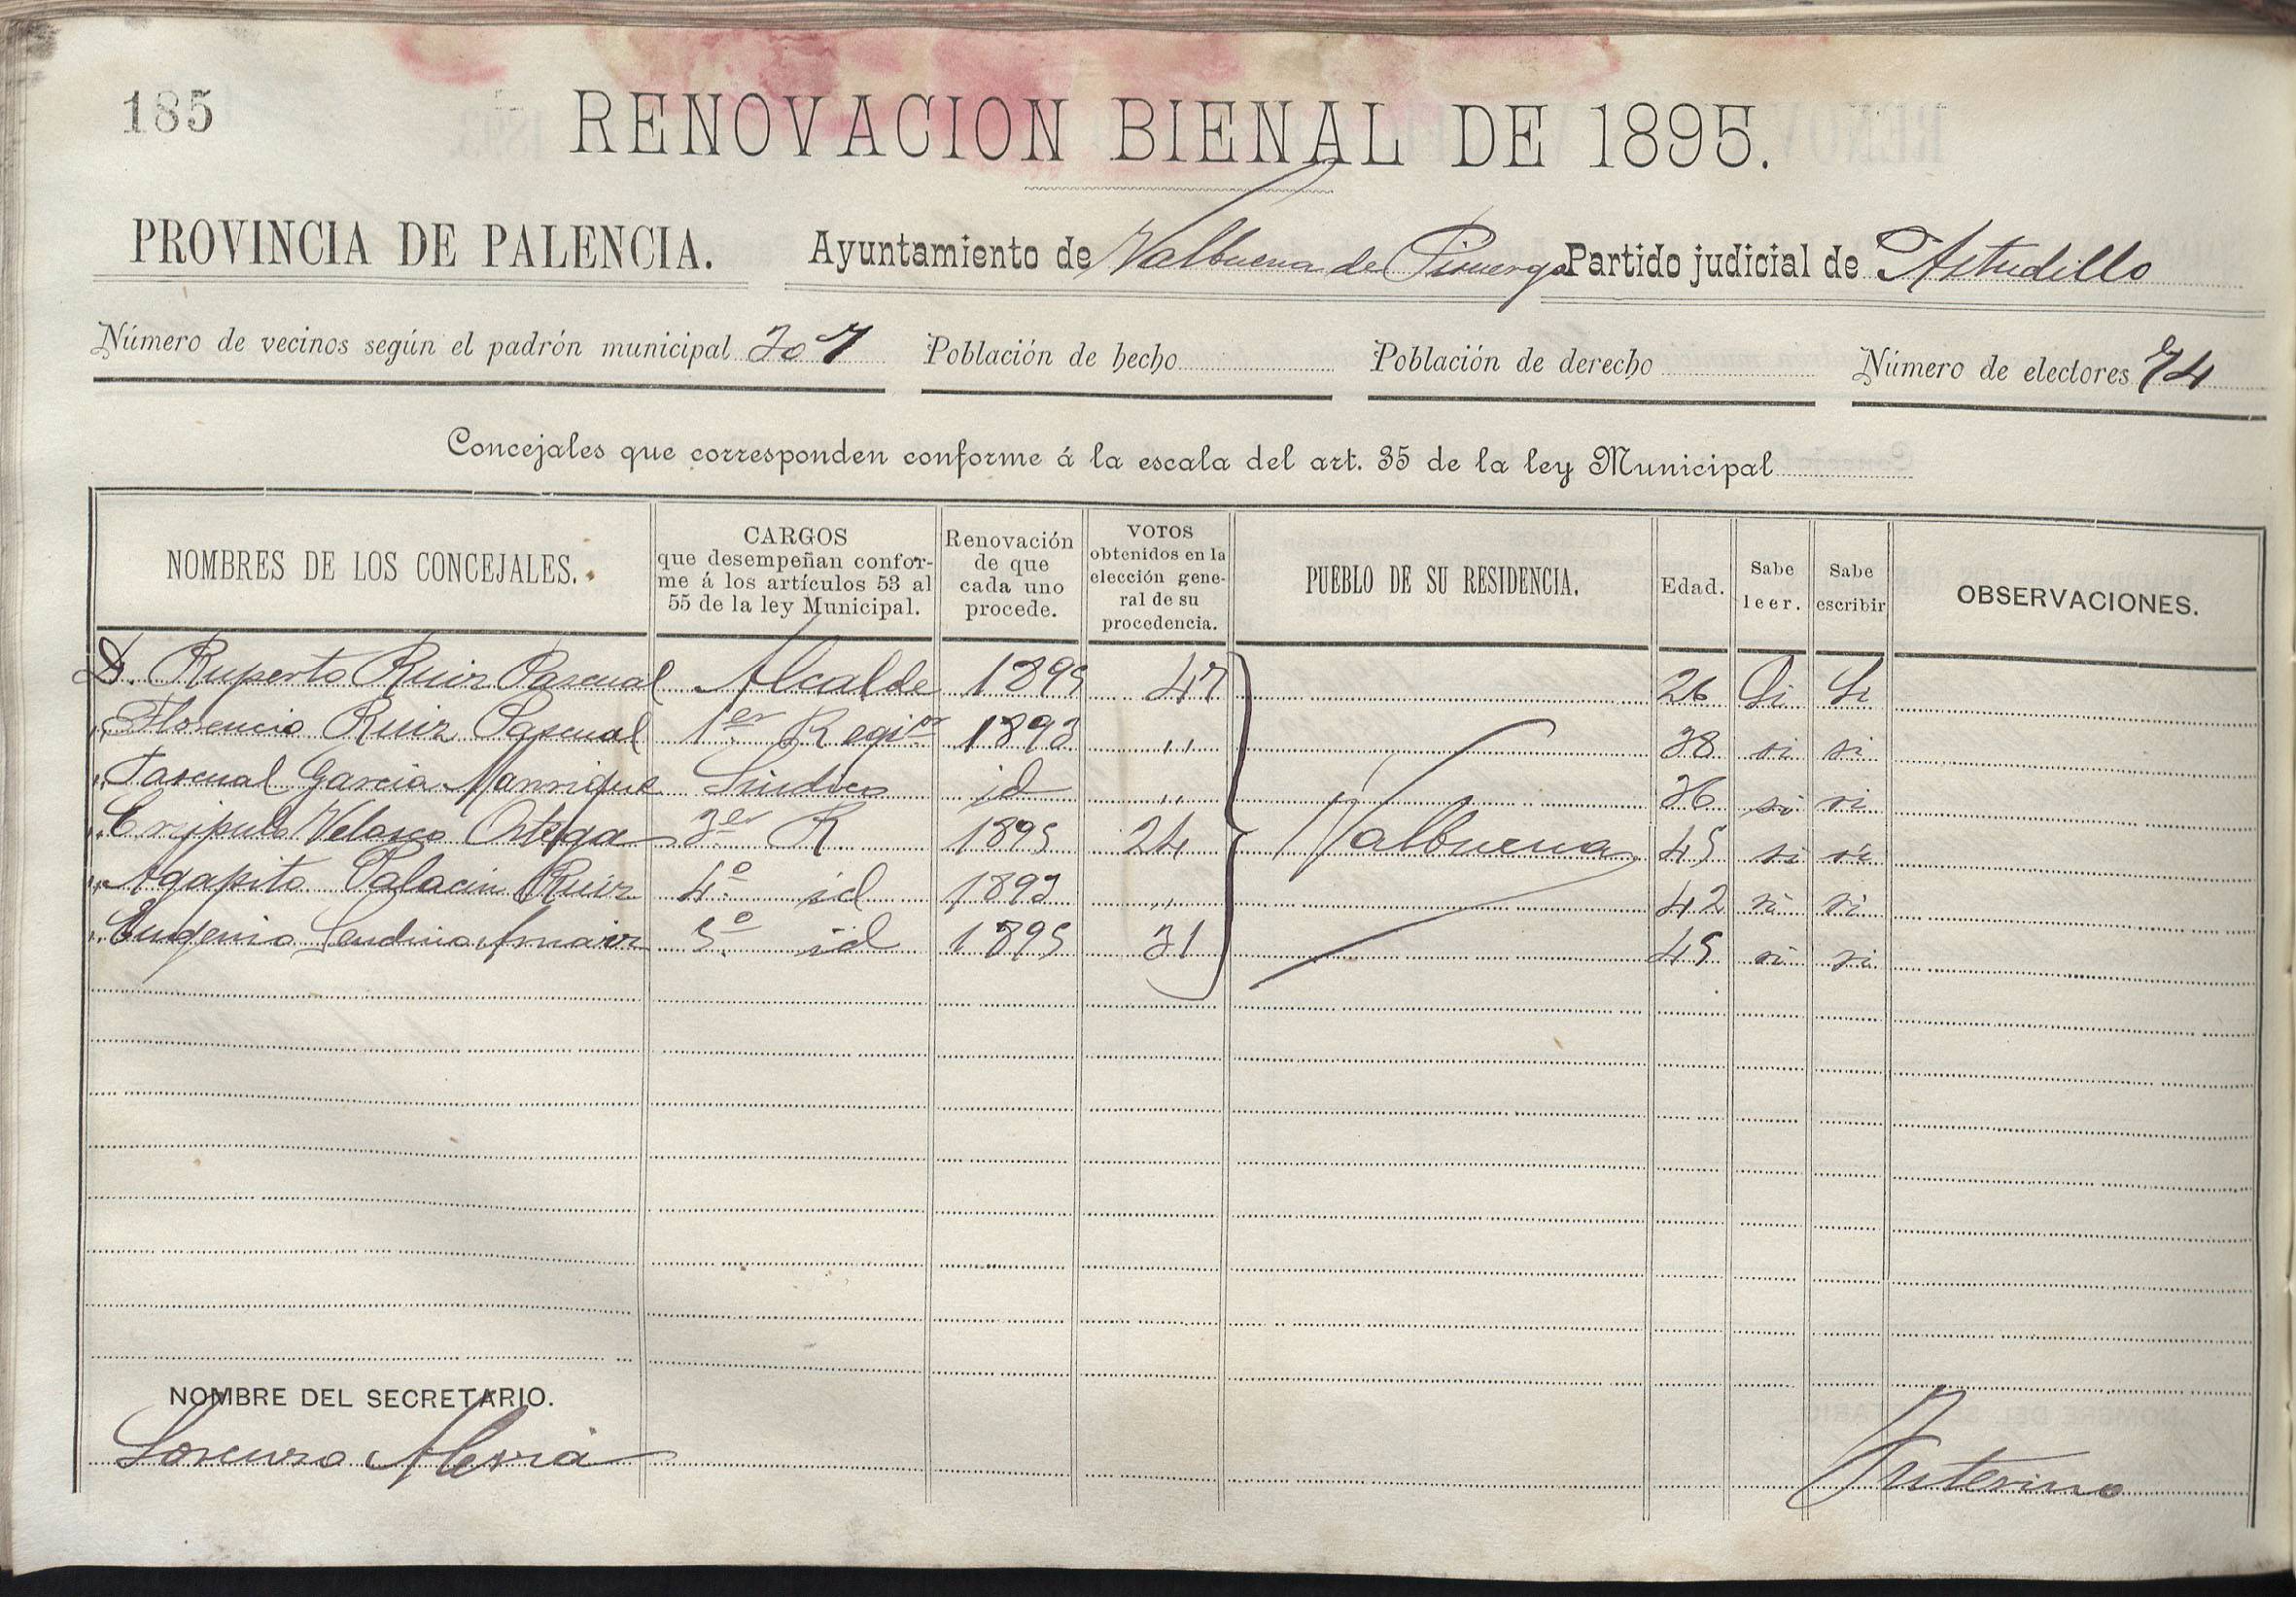 185
RENOVACION BIENAL DE 1895.
PROVINCIA DE PALENCIA. Ayuntamiento de Valbuena de Pisuerga Partido judicial de Astudillo
Número de vecinos según el padrón municipal 307 Población de hecho Población de derecho Número de electores 74
Concejales que corresponden conforme á la escala del art. 35 de la ley Municipal
NOMBRES DE LOS CONCEJALES. CARGOS que desempeñan conforme á los artículos 53 al 55 de la ley Municipal. Renovación de que cada uno procede. VOTOS obtenidos en la elección general de su procedencia. PUEBLO DE SU RESIDENCIA. Edad. Sabe leer. Sabe escribir OBSERVACIONES.
D. Ruperto Ruiz Pascual Alcalde 1895 47 26 Si Si
" Florencio Ruiz Pascual 1er Regior 1893 " 38 si si
" Pascual Garcia Manrique Sindico id " 36 si si
" Crípulo Velasco Ortega 3er R 1895 24 Valbuena 45 si si
" Agapito Palacin Ruiz 4º id 1893 " 42 si si
" Eugenio Sendino 5º id 1895 31 45 si si
NOMBRE DEL SECRETARIO.
Lorenzo
Interino